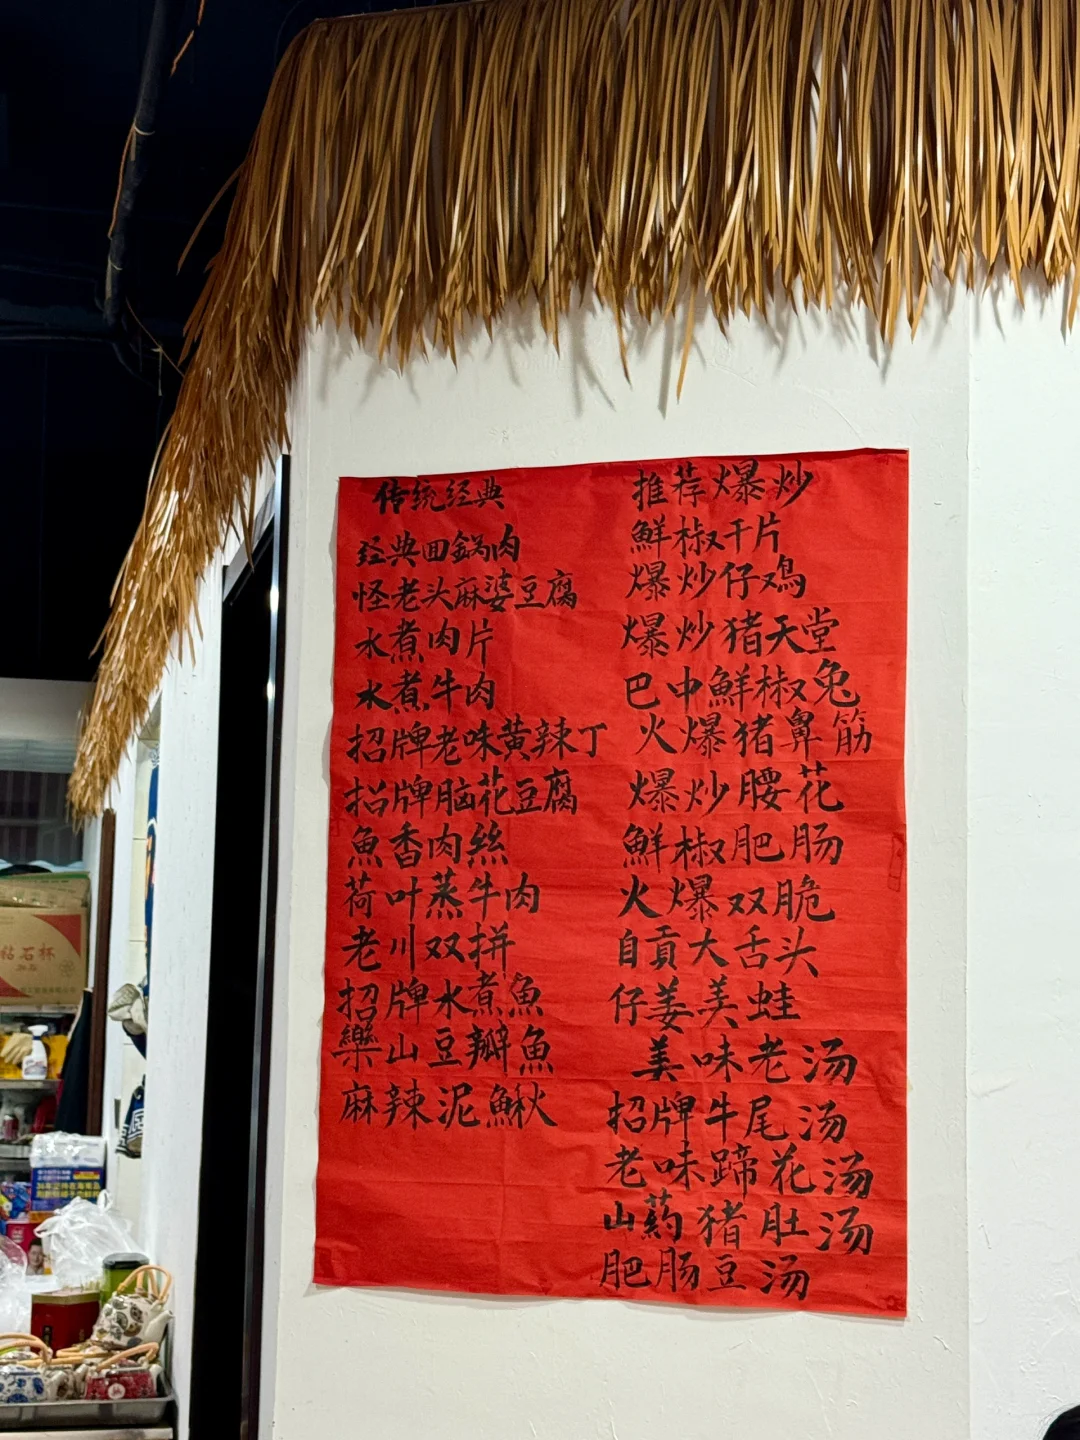 传统经典
经典回鍋肉
怪老头麻婆豆腐
水煮肉片
水煮牛肉
招牌老味黄辣丁
招牌脑花豆腐
魚香肉絲
荷叶蒸牛肉
老川双拼
招牌水煮魚
樂山豆瓣魚
麻辣泥鰍
推荐爆炒
鮮椒干片
爆炒仔鸡
爆炒猪天堂
巴中鮮椒兔
火爆猪鼻筋
爆炒腰花
鮮椒肥肠
火爆双脆
自貢大舌头
仔姜美蛙
美味老汤
招牌牛尾汤
老味蹄花汤
山药猪肚汤
肥肠豆汤
钻石杯